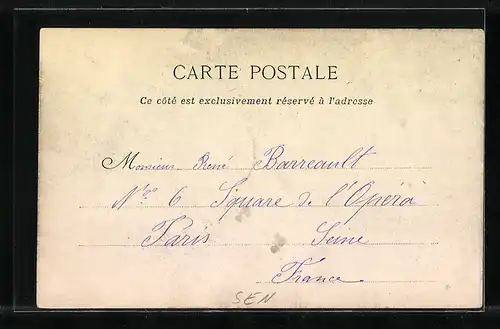 CARTE POSTALE
Ce côté est exclusivement réservé à l'adresse
Monsieur René Barreault
Nro 6 Square de l'Opéra
Paris Seine
France
SEN